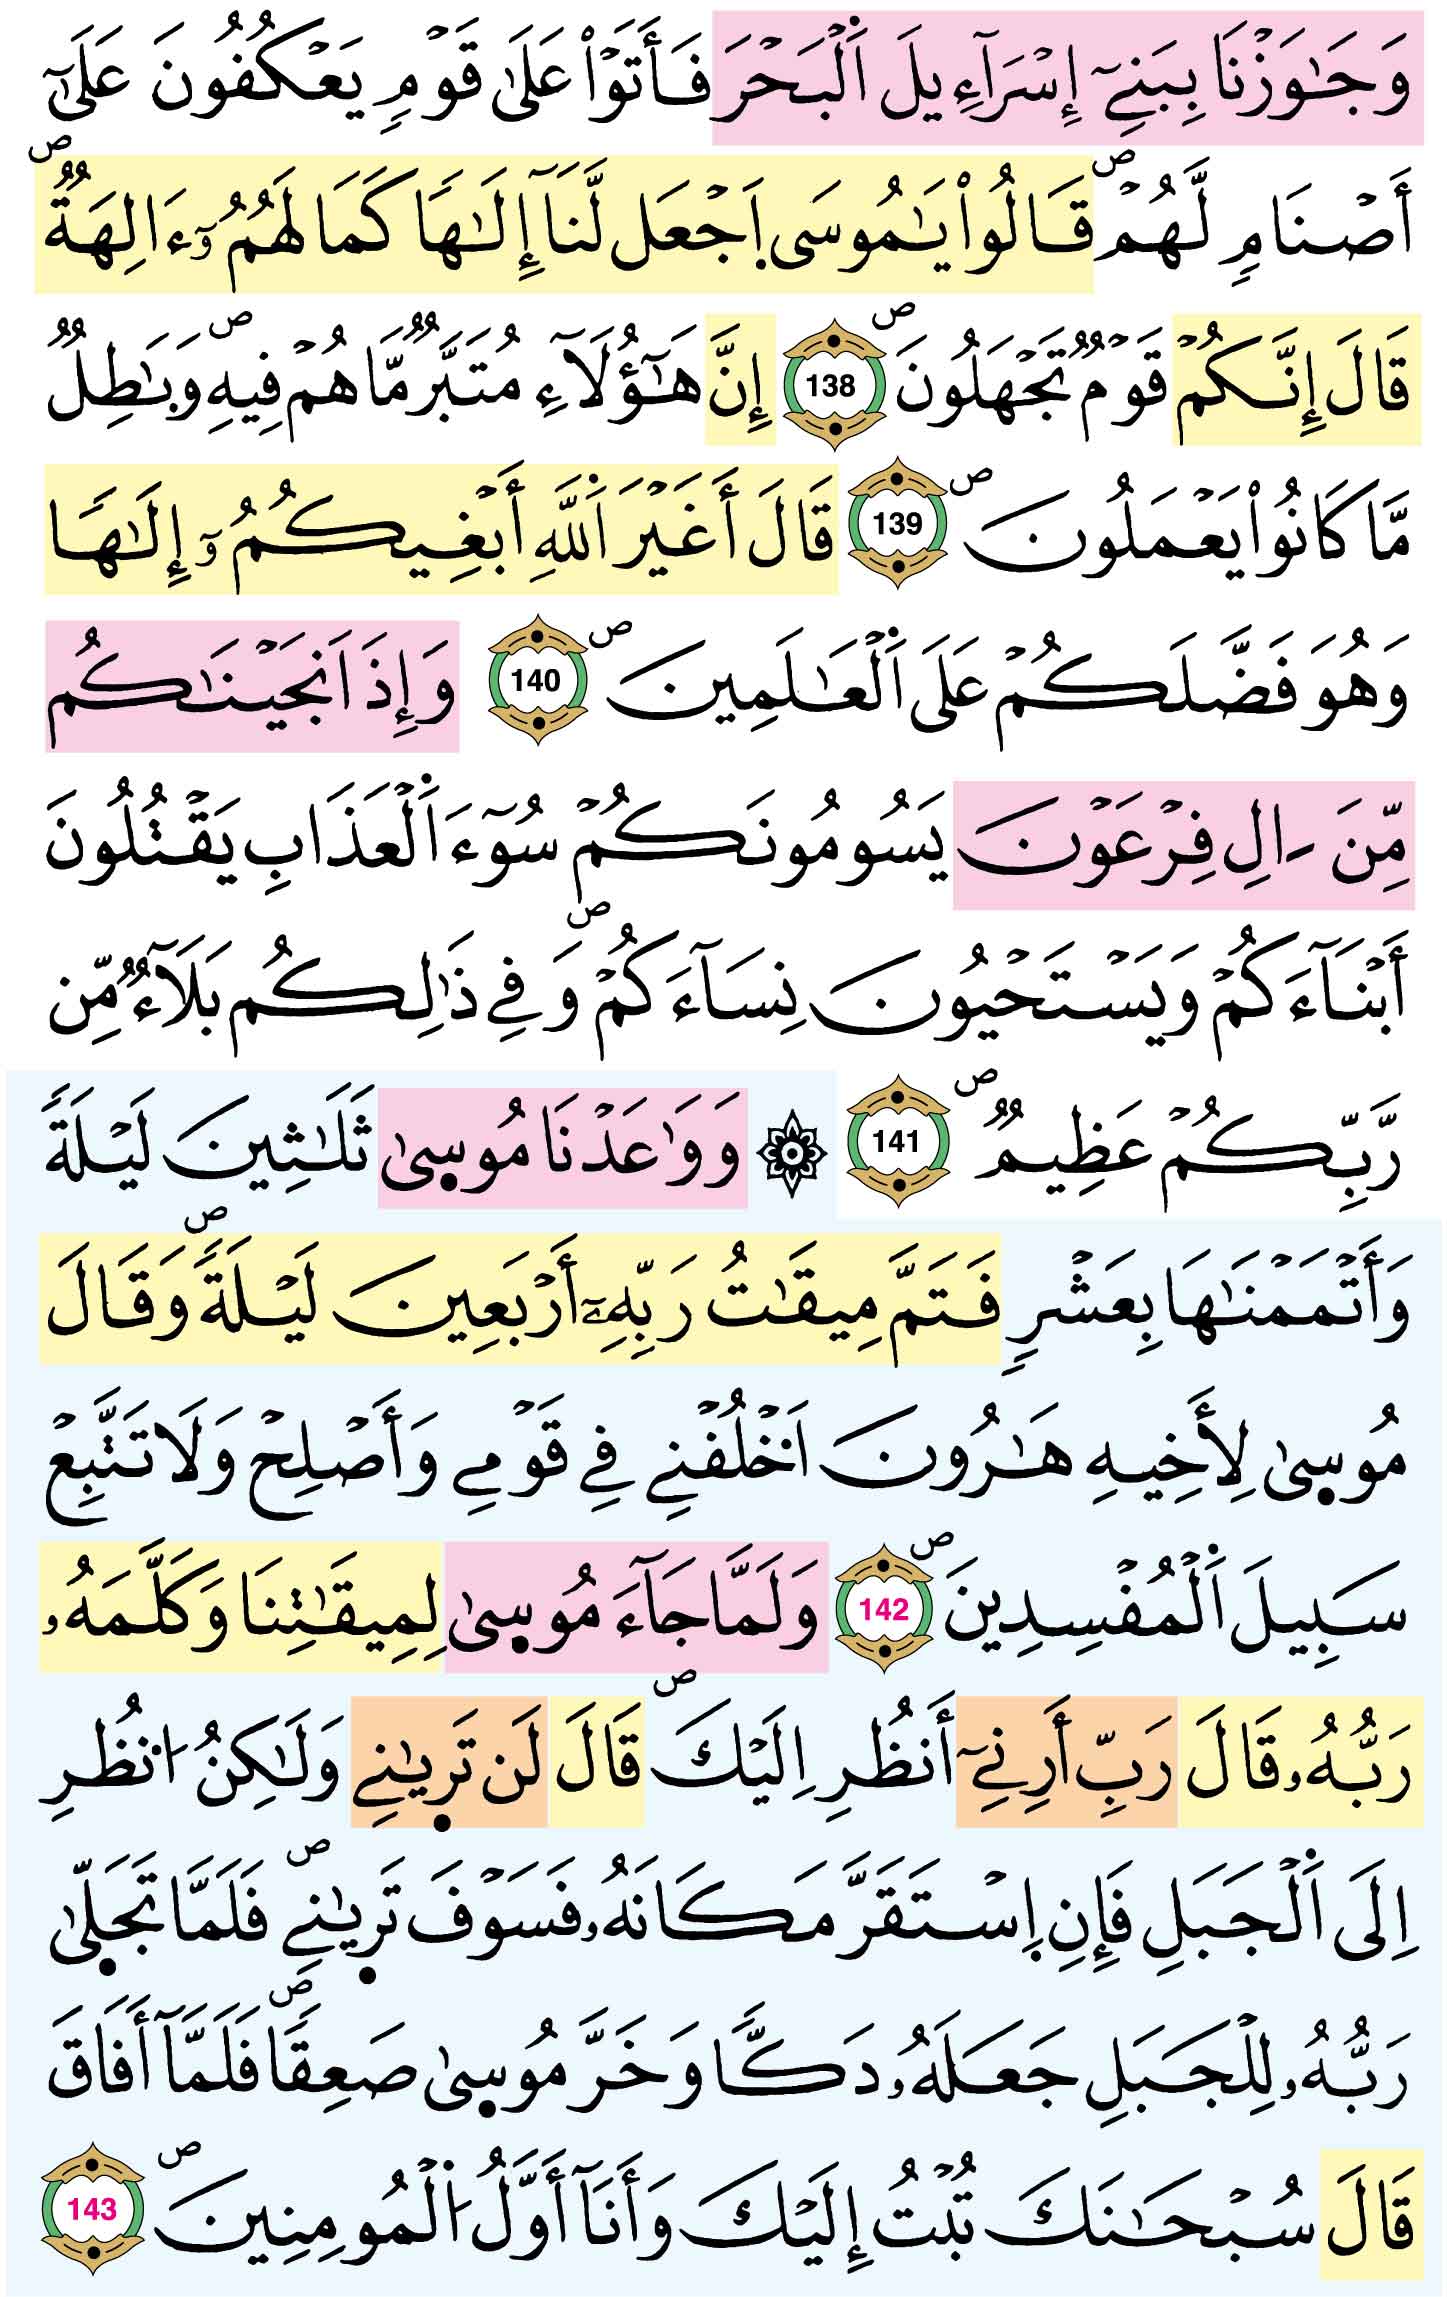 وَجَٰوَزْنَا بِبَنِےٓ إِسْرَآءِيلَ اَ۬لْبَحْرَ فَأَتَوْاْ عَلَىٰ قَوْمٖ يَعْكُفُونَ عَلَىٰٓ
أَصْنَامٖ لَّهُمْۖ قَالُواْ يَٰمُوسَى اَ۪جْعَل لَّنَآ إِلَٰهاٗ كَمَا لَهُمُۥٓ ءَالِهَةٞۖ
قَالَ إِنَّكُمْ قَوْمٞ تَجْهَلُونَۖ 138 إِنَّ هَٰٓؤُلَآءِ مُتَبَّرٞ مَّا هُمْ فِيهِۖ وَبَٰطِلٞ
مَّا كَانُواْ يَعْمَلُونَۖ 139 قَالَ أَغَيْرَ اَ۬للَّهِ أَبْغِيكُمُۥٓ إِلَٰهاٗ
وَهُوَ فَضَّلَكُمْ عَلَى اَ۬لْعَٰلَمِينَۖ 140 وَإِذَ اَنجَيْنَٰكُم
مِّنَ اٰلِ فِرْعَوْنَ يَسُومُونَكُمْ سُوٓءَ اَ۬لْعَذَابِ يَقْتُلُونَ
أَبْنَآءَكُمْ وَيَسْتَحْيُونَ نِسَآءَكُمْۖ وَفِے ذَٰلِكُم بَلَآءٞ مِّن
رَّبِّكُمْ عَظِيمٞۖ 141 ۞ وَوَٰعَدْنَا مُوسٜىٰ ثَلَٰثِينَ لَيْلَةٗ
وَأَتْمَمْنَٰهَا بِعَشْرٖ فَتَمَّ مِيقَٰتُ رَبِّهِۦٓ أَرْبَعِينَ لَيْلَةٗۖ وَقَالَ
مُوسٜىٰ لِأَخِيهِ هَٰرُونَ اَ۟خْلُفْنِے فِے قَوْمِے وَأَصْلِحْ وَلَا تَتَّبِعْ
سَبِيلَ اَ۬لْمُفْسِدِينَۖ 142 وَلَمَّا جَآءَ مُوسٜىٰ لِمِيقَٰتِنَا وَكَلَّمَهُۥ
رَبُّهُۥ قَالَ رَبِّ أَرِنِےٓ أَنظُرِ اِلَيْكَۖ قَالَ لَن تَرٜيٰنِے وَلَٰكِنُ اُ۟نظُرِ
اِلَى اَ۬لْجَبَلِ فَإِنِ اِ۪سْتَقَرَّ مَكَانَهُۥ فَسَوْفَ تَرٜيٰنِےۖ فَلَمَّا تَجَلّٜىٰ
رَبُّهُۥ لِلْجَبَلِ جَعَلَهُۥ دَكّاٗ وَخَرَّ مُوسٜىٰ صَعِقاٗۖ فَلَمَّآ أَفَاقَ
قَالَ سُبْحَٰنَكَ تُبْتُ إِلَيْكَ وَأَنَآ أَوَّلُ اُ۬لْمُومِنِينَۖ 143